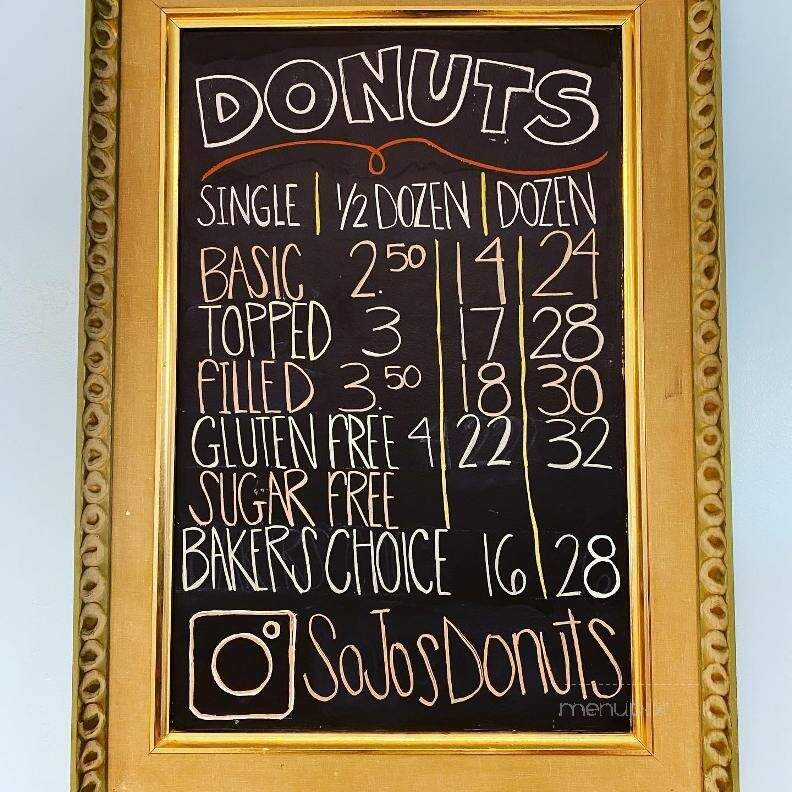 DONUTS
SINGLE | 1/2 DOZEN | DOZEN
BASIC 2.50 | 14 | 24
TOPPED 3 | 17 | 28
FILLED 3.50 | 18 | 30
GLUTEN FREE 4 | 22 | 32
SUGAR FREE
BAKERS CHOICE 16 | 28
SoJosDonuts